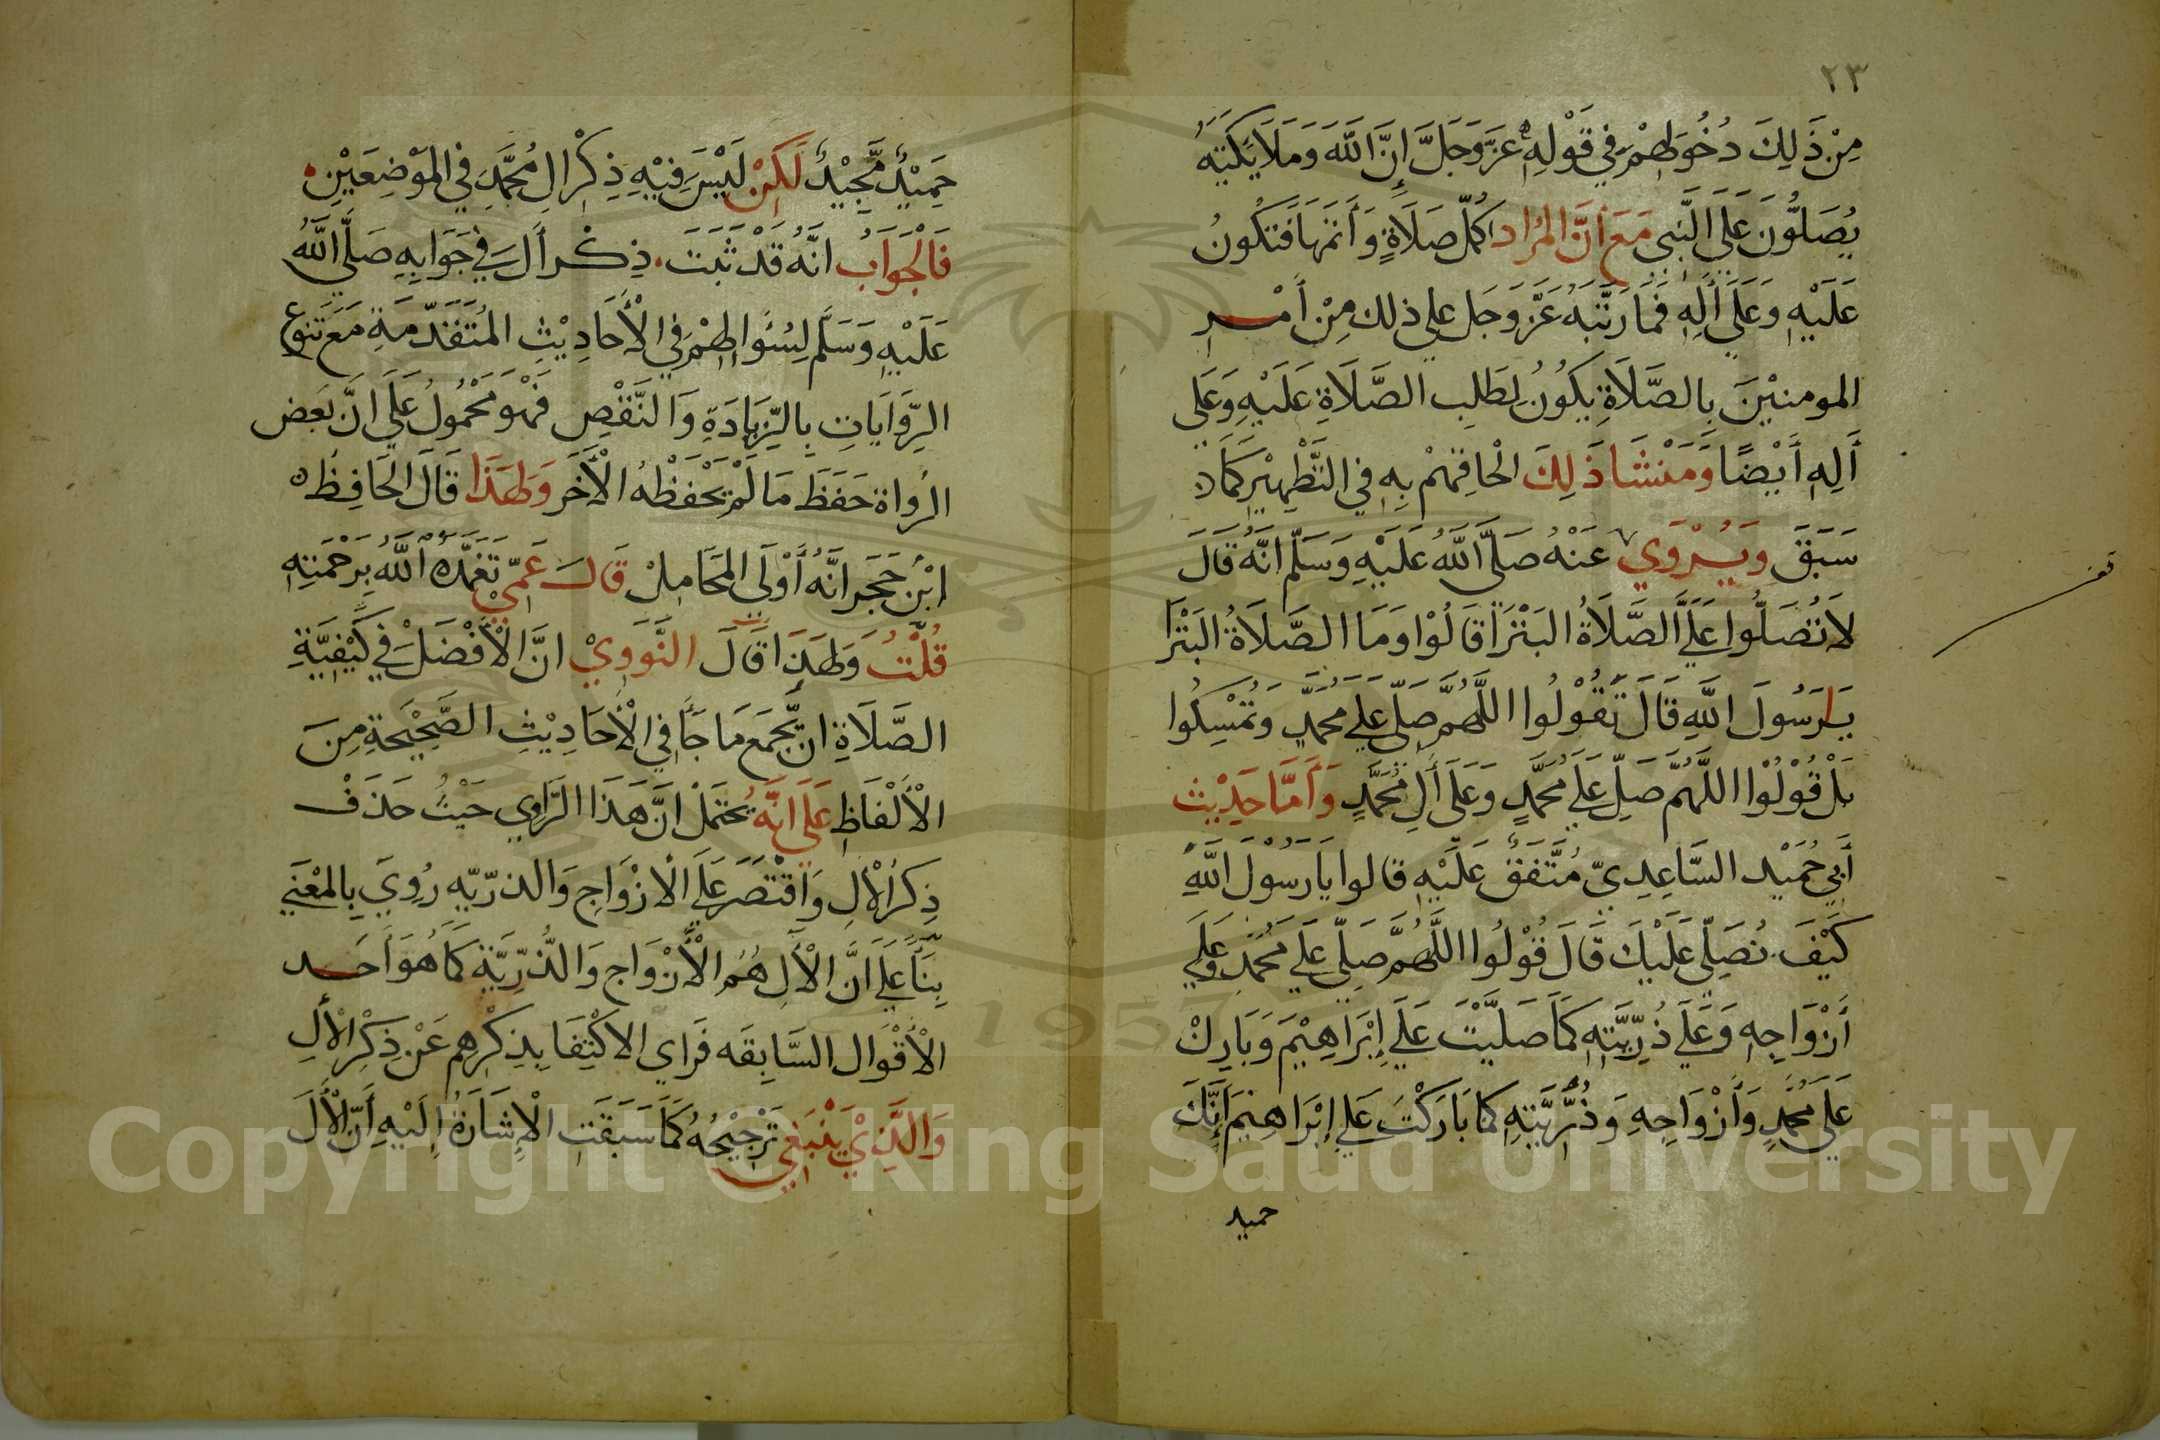 ٢٣
مِنْ ذَلِكَ دُخُولُهُمْ فِي قَوْلِهِ عَزَّ وَجَلَّ إِنَّ اللَّهَ وَمَلَائِكَتَهُ
يُصَلُّونَ عَلَى النَّبِي مَعَ أَنَّ المُرَاد أكْمَلُ صَلَاةٍ وَأَتَمَّهَا فَتَكُونُ
عَلَيْهِ وَعَلَى أَلِهِ فَمَا رَتَّبَهُ عَزَّ وَجَل علي ذلك مِنْ أَمْر
المومنيْنَ بالصَّلَاةِ يَكُونُ لِطَلِب الصَّلَاةِ عَلَيْهِ وَعَلَى
أَلِهِ أَيْضًا وَمَنْشَا ذَلِكَ الْحَاقِهمْ بِهِ فِي التَّطْهِيْرِ كَمَا
سَبَقَ ويُرْوَي عَنْهُ صَلَّى اللَّهُ عَلَيْهِ وَسَلَّم انَّهُ قَالَ
لَا تُصَلُّوا عَلَيَّ الصَّلَاةُ البَتْرَا قَالُوْا وَمَا الصَّلَاةُ البَتْرَا
يَا رَسُولَ اللَّهِ قَالَ تَقُوْلُوا اللَّهُمَّ صَلِّ عَلَي مُحَمَّدٍ وَتُمْسِكُوا
بَلْ قُوْلُوْا اللَّهُمَّ صَلِّ عَلَي مُحَمَّدٍ وَعَلَى أَلِ مُحَمَّدٍ وَأَمَّا حَدِيْث
أَبِي حُمَيْد السَّاعِدِيّ مُتَّفَقٌ عَلَيْهِ قالوا يَا رَسُوْلَ اللَّهِ
كَيْفَ نُصَلِّي عَلَيْكَ قَالَ قُوْلُوا اللَّهُمَّ صَلِّي عَلَي مُحَمَّدٍ وعَلَي
أَزْوَاجِهِ وَعَلَي ذُرِّيَّتِهِ كَمَا صَلَيَّتْ عَلَي إِبْرَاهِيْمَ وَبَارِكْ
عَلَى مُحَمَّدٍ وَأَزْوَاجِهِ وَذُرِّيَّتِهِ كما بَارَكْتَ عَلَي إبْرَاهِيمَ إنَّكَ
حميد
حَمِيْدٌ مَّجِيْدٌ لَكِنْ لَيْسَ فِيْهِ ذِكْرُ الِ مُحَمَّدٍ فِي المَوْضِعَيْنِ
فَالْجَوَابُ انَّهُ قَدْ ثَبَتَ ذِكر ألَ فِي جَوَابِهِ صَلَّى اللَّهُ
عَلَيْهِ وَسَلَّم لِسُؤَالِهِمْ فِي الْأَحَادِيْثِ المُتَقَدِّمَةِ مَعَ تَنَوع
الرِّوَايَاتِ بِالزِّيَادَةِ وَالنَّقْصِ فَهْوَ مَحْمُولٌ عَلَي انَّ بَعَض
الرُواة حَفَظَ مَا لَمْ يَحْفَظْهُ الْأَخَر وَلِهَذَا قَالَ الحَافِظُ
ابْنُ حَجَر انَّهُ أَوْلَى المَحَامِلْ قَالَ عَمِّي تَغَمَّدَهُ اللَّهُ بِرَحْمَتِهِ
قُلْتُ وَلِهَذَا قَالَ النَّوَوِيْ انَّ الْأَفْضَلْ فِي كَيْفِيَّةِ
الصَّلَاةِ ان يَّجْمَع مَا جَأَ فِي الْأَحَادِيْثِ الصَّحِيْحَةِ مِنَ
الْأَلْفَاظِ عَلَى انَّهُ يَحْتَمَلْ انَّ هَذَا الرَّاوِي حَيْثُ حَذَفْ
ذِكرَ الْأَلِ وَاقْتَصَرَ عَلَي الأَزْوَاجِ وَالذرِّيّه رُوِيَ بِالمْعَنَي
بِنَأً عَلَي انَّ الْأَلِ هُم الْأَزْوَاج وَالذُّرِّيَّةِ كَمَا هُوَ أَحَد
الْأَقْوَال السَّابِقَه فَرَاي الاكْتِفَا بِذِكْرِهِم عَنْ ذِكْرِ الْأَلِ
وَالَّذِيْ يَنْبَغِي تَرْجِيْحُهُ كَمَا سَبَقَتِ الْإِشَارَةُ إِلَيْهِ أَنَّ الْأَلَ
Copyright © King Saud University
1957